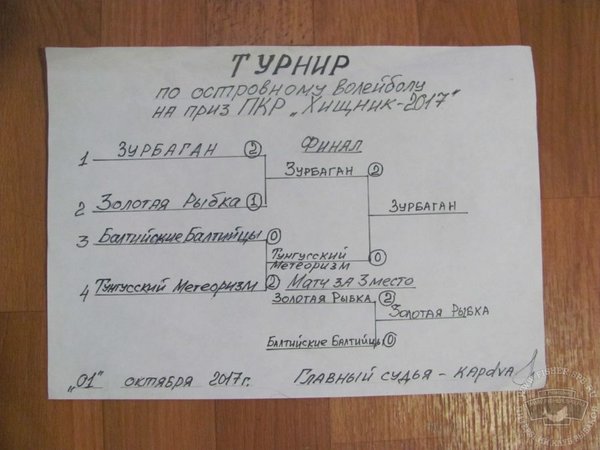 ТУРНИР
по островному волейболу
на приз ПКР „Хищник-2017"
1 ЗУРБАГАН 2
Финал
ЗУРБАГАН 2
2 Золотая Рыбка 1
ЗУРБАГАН
3 Балтийские Балтийцы 0
Тунгусский
Метеоризм 0
4 Тунгусский Метеоризм 2
Матч за 3 место
Золотая Рыбка 2
Золотая Рыбка
Балтийские Балтийцы 0
„01" октября 2017г.
Главный судья - КАРdvA